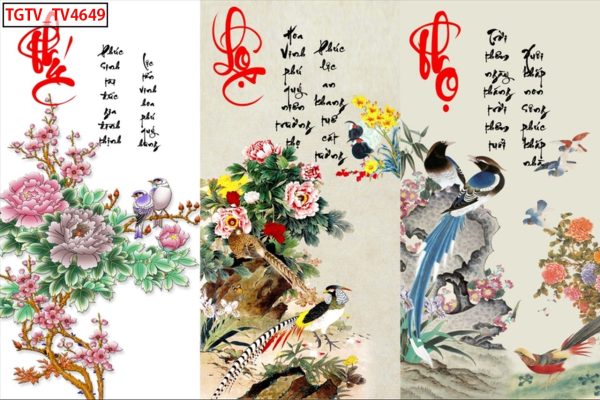 TGTV_TV4649
Phúc
Phúc Sinh tài Đức gia đình thịnh
Lộc tấn vinh hoa phú quý
Lộc
Hoa Vinh phú quý niên trường thọ
Phúc lộc an khang tuế cát tường
Thọ
Trời thêm ngày tháng trời thêm tuổi
khắp non Sông phúc khắp nhà